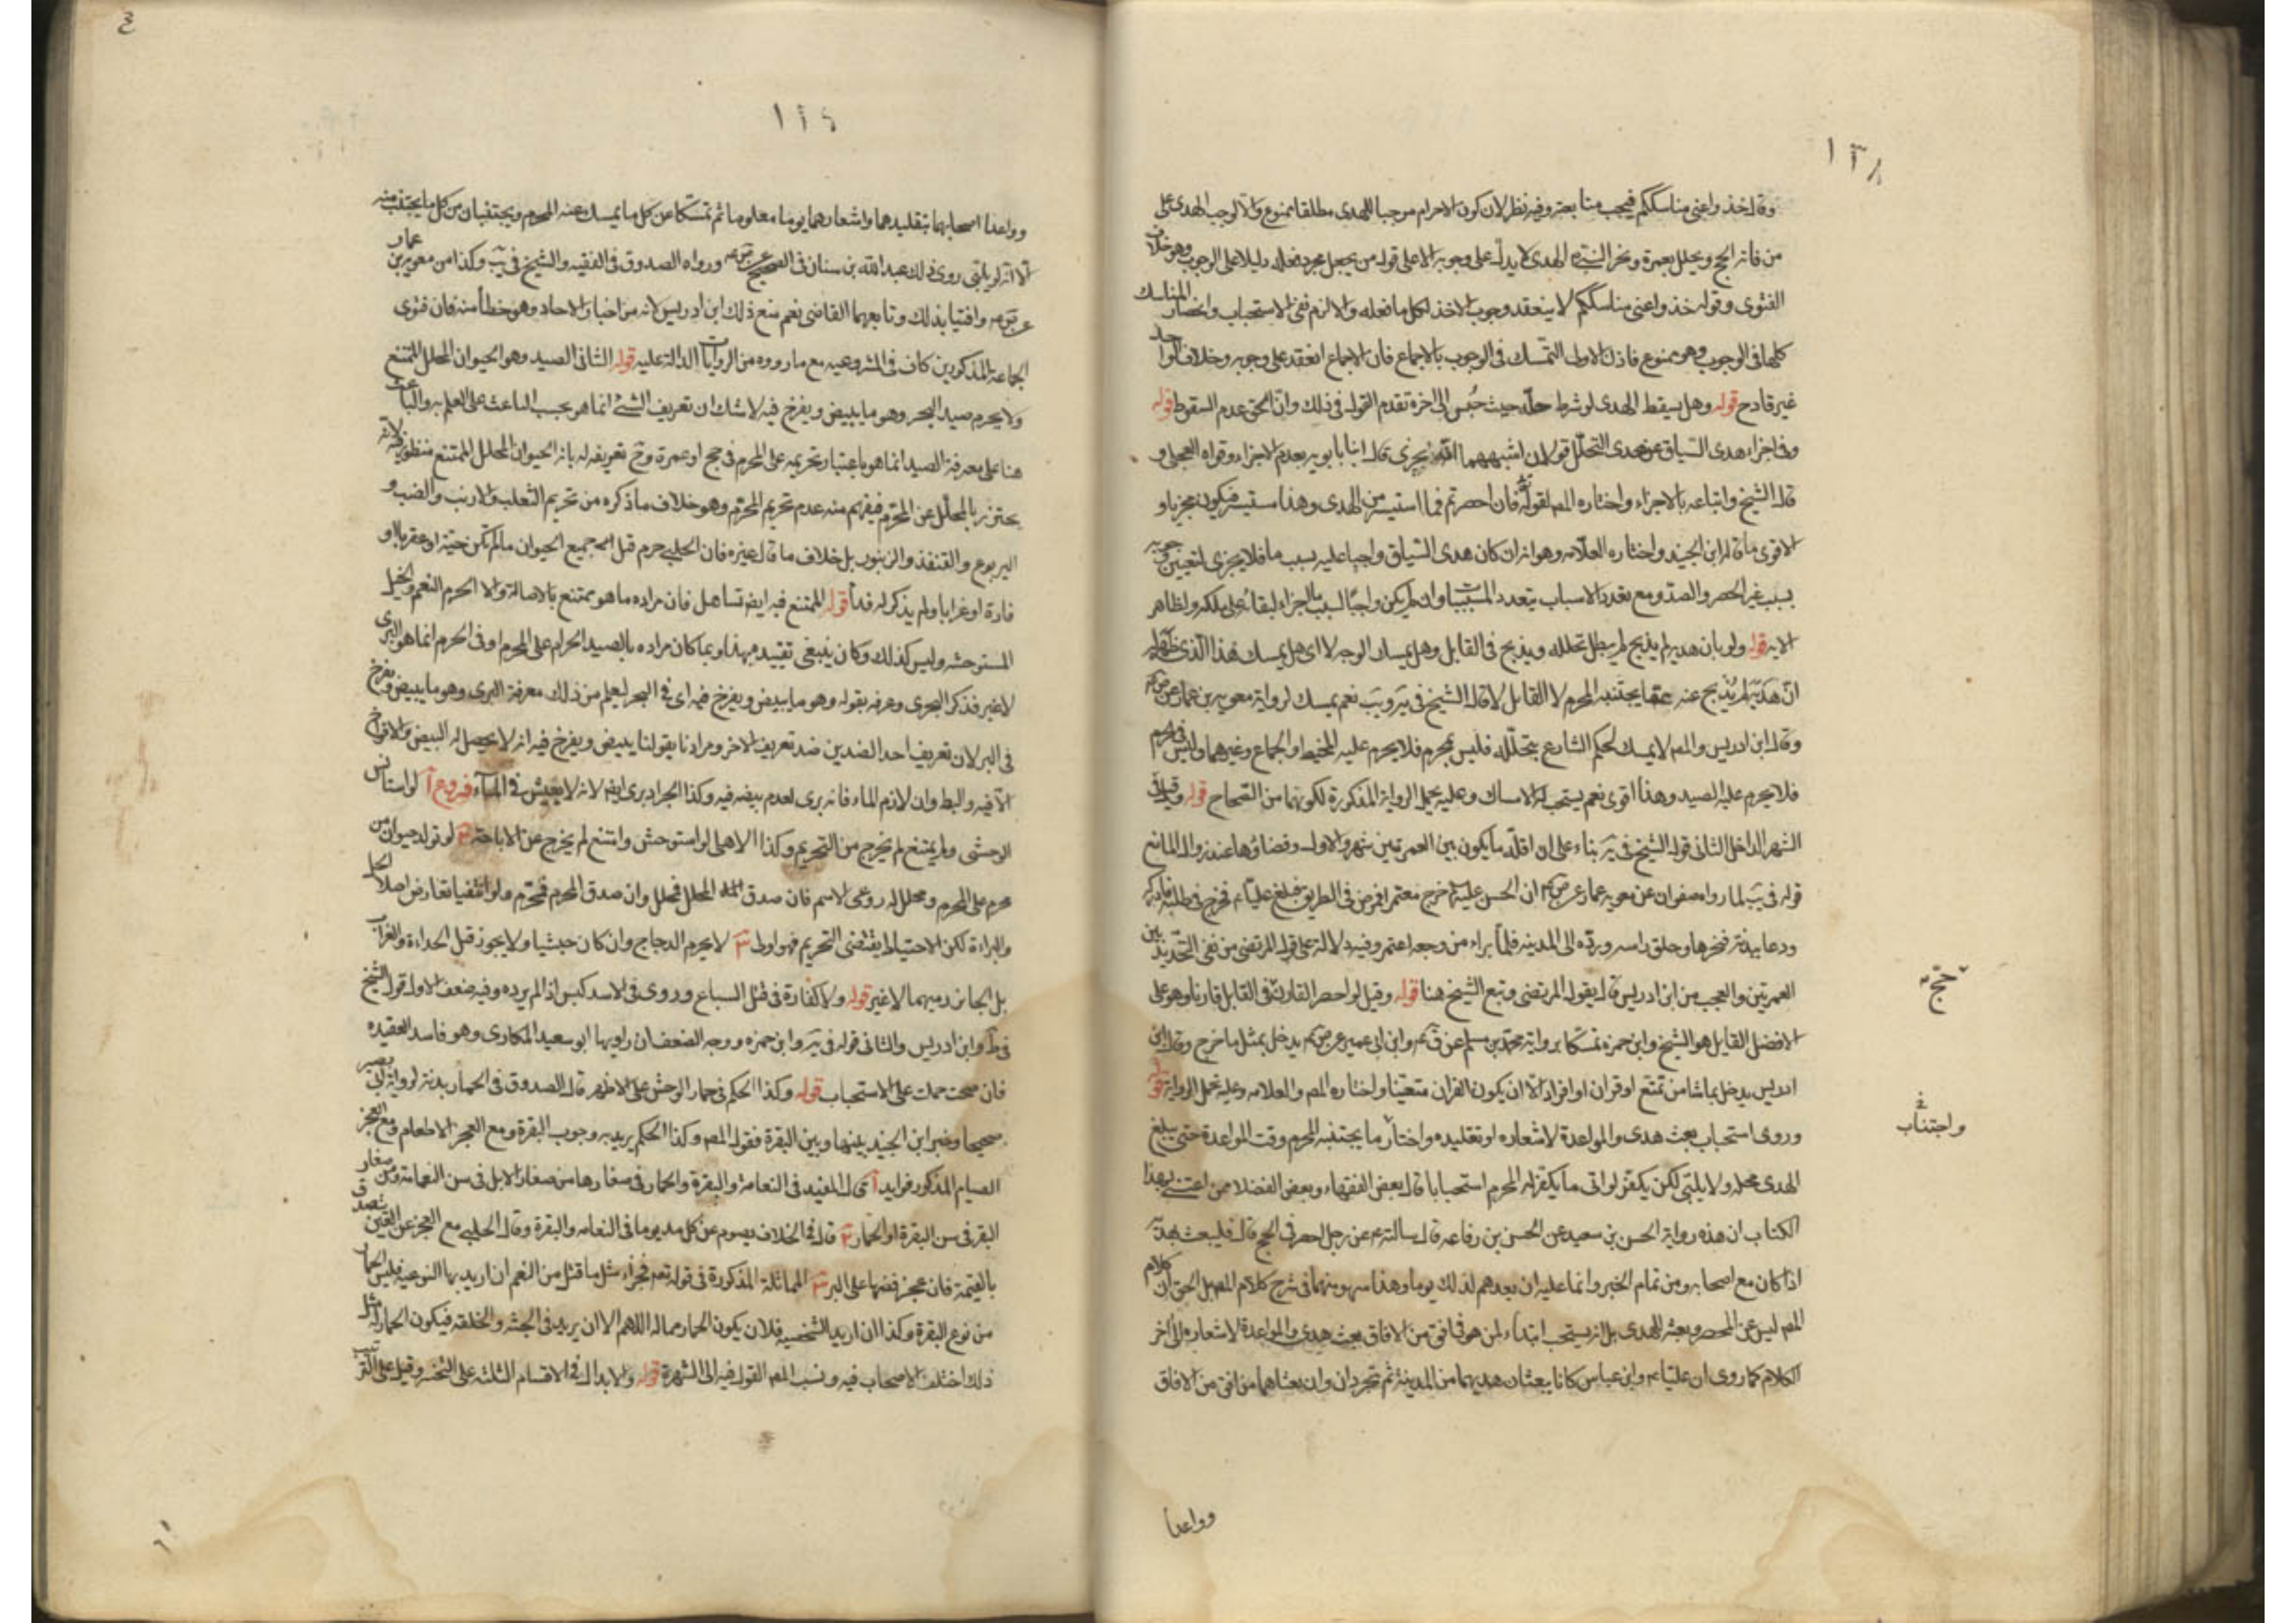 ١٣٨
وقال خذوا عنى مناسككم فيجب متابعته وفيه نظر لان كون الاحرام موجبا للهدى مطلقا ممنوع والا لوجب الهدى على
من فاته الحج ويحلل بعمرة ونحر النبي الهدى لا يدل على وجوبه الا على قول من يجعل مجرد فعله دليلا على الوجوب وهو خلاف
الفتوى وقوله خذوا عنى مناسككم لا ينعقد وجوب الاخذ لكل ما فعله والا لزم نفى الاستحباب وانحصار المناسك
كلها فى الوجوب وهو ممنوع فاذن الاولى التمسك فى الوجوب بالاجماع فان الاجماع انعقد على وجوبه وخلاف الواحد
غير قادح قوله وهل يسقط الهدى لو شرط حله حيث حبس الى اخره تقدم القول فى ذلك وان الحق عدم السقوط قوله
وفى اجزاء هدى السياق عن هدى التحلل قولان اشبههما انه يجزى قال ابنا بابويه بعدم الاجزاء وقواه العجلى و
قال الشيخ واتباعه بالاجزاء واختاره المصـ لقوله تع فان احصرتم فما استيسر من الهدى وهذا مستيسر فيكون مجزيا و
الاقوى ما قاله ابن الجنيد واختاره العلامه وهو انه ان كان هدى السياق واجبا عليه بسبب ما فلا يجزى لتعيين وجوبه
بسبب غير الحصر والصد ومع تعدد الاسباب يتعدد المسببات وان لم يكن واجبا لسبب ما اجزاء لبقائه على ملكه ولظاهر
الايه قوله ولو بان هديه لم يذبح لم يبطل تحلله ويذبح فى القابل وهل يمسك الوجه لا اى هل يمسك هذا الذى ظهر له
ان هديه لم يذبح عنه عما يجتنبه المحرم لا القابل لا قال الشيخ فى يه ويب نعم يمسك لرواية معويه بن عمار عن ص ع
وقال ابن ادريس والمصـ لا يمسك لحكم الشارع بتحلله فليس بمحرم فلا يحرم عليه المخيط او الجماع وغيرهما وليس فى حرم
فلا يحرم عليه الصيد وهذا اقوى نعم يستحب له الامساك وعليه يحمل الرواية المذكورة لكونها من الصحاح قوله وقيل فى
الشهر الداخل الثانى قول الشيخ فى يه بناء على ان اقل ما يكون بين العمرتين شهر والاول وقضاؤها عند زوال المانع
قوله فى يب لما رواه صفوان عن معويه عمار عن ص ع ان الحسن عليه خرج معتمرا فمرض فى الطريق فبلغ عليا ع فخرج فى طلبه فادركه
ودعا ببدنة فنحرها وحلق راسه ورده الى المدينه فلما براء من وجعه اعتمر وفيه دلالة على قول المرتضى من نفى التحديد بين
العمرتين والعجب من ابن ادريس قال بقول المرتضى وتبع الشيخ هنا قوله وقيل لو احصر القارن فى القابل قارنا وهو على
الافضل القايل هو الشيخ وابن حمزه تمسكا برواية محمد بن مسلم عن ق ع وابن ابى عمير عن ص ع يدخل بمثل ما خرج وقال ابن
ادريس يدخل بما شا من تمتع او قران او افراد الا ان يكون القران متعينا واختاره المصـ والعلامه وعليه تحمل الرواية قوله
وروى استحباب بعث هدى والمواعدة لاشعاره او تقليده واجتناب ما يجتنبه المحرم وقت المواعدة حتى يبلغ
الهدى محله ولا يلبى لكن يكفر لو اتى ما يكفر له المحرم استحبابا قال بعض الفقهاء وبعض الفضلا ممن اعتنى بهذا
الكتاب ان هذه رواية الحسن بن سعيد عن الحسن بن رفاعه قال سالته ع عن رجل احصر فى الحج قال فليبعث بهديه
اذا كان مع اصحابه ومن تمام الخبر وانما عليه ان يعدهم لذلك يوما وهذا سهو منهما فى شرح كلام المصـ بل الحق ان كلام
المصـ ليس عن المحصر وبعثه للهدى بل انه يستحب ابتداء لمن هو فى افق من الافاق بعث هدى والمواعدة لاشعاره الى اخر
الكلام كما روى ان عليا ع وابن عباس كانا يبعثان هديهما من المدينة ثم تجردان وان بعثاهما من افق من الافاق
حج
واجتناب
وواعدا
وواعدا اصحابهما بتقليدهما واشعارهما يوما معلوما ثم تمسكا عن كل ما يمسك عنه المحرم ويجتنبان من كل ما يجتنب منه
الا انه لا يلبى روى ذلك عبد الله بن سنان فى الصحيح عن ص ع ورواه الصدوق فى الفقيه والشيخ فى يب وكذا من معويه بن عمار
عن ص ع وافتيا بذلك وتابعهما القاضى نعم منع ذلك ابن ادريس لانه من اخبار الاحاد وهو خطأ منه فان فتوى
الجماعة المذكورين كاف فى المشروعيه مع ما رووه من الروايات الدالة عليه قوله الثانى الصيد وهو الحيوان المحلل الممتنع
ولا يحرم صيد البحر وهو ما يبيض ويفرخ فيه لا شك ان تعريف الشئ انما هو بحسب الباعث على العلم به والباعث
هنا على معرفة الصيد انما هو باعتبار تحريمه على المحرم فى حج او عمرة وح تعريفه له بانه الحيوان المحلل الممتنع منظور فيه لانه
يحترز بالمحلل عن المحرم فيفهم منه عدم تحريم المحرم وهو خلاف ما ذكره من تحريم الثعلب والارنب والضب و
اليربوع والقنفذ والزنبور بل خلاف ما قال غيره فان الحلبى حرم قتل جميع الحيوان ما لم تكن حية او عقربا او
فارة او غرابا ولم يذكر له فدأ قوله الممتنع فيه ايضا تساهل فان مراده ما هو ممتنع بالاصالة والا لحرم النعم والخيل
المستوحشه وليس كذلك وكان ينبغى تقييده بهذا وبما كان مراده بالصيد الحرام على المحرم او فى الحرم انما هو البرى
لا غير فذكر البحرى وعرفه بقوله وهو ما يبيض ويفرخ فيه اى فى البحر ليعلم من ذلك معرفة البرى وهو ما يبيض ويفرخ
فى البر لان تعريف احد الضدين ضد تعريف الاخر ومرادنا بقولنا يبيض ويفرخ فيه انه لا يحصل له البيض والافراخ
الا فيه والبط وان لازم الماء فانه برى لعدم بيضه فيه وكذا الجراد برى ايضا لانه لا يعيش فى الماء فروع ا لو استانس
الوحشى ولم يمتنع لم يخرج من التحريم وكذا الاهلى لو استوحش وامتنع لم يخرج عن الاباحة ب لو تولد حيوان من
محرم على المحرم ومحلل له روعى الاسم فان صدق المحلل فمحلل وان صدق المحرم فمحرم ولو انتفيا تعارض اصلا الحل
والبراءة لكن الاحتياط يقتضى التحريم فهو اولى ج لا يحرم الدجاج وان كان حبشيا ولا يجوز قتل الحداءة والغراب
بل الجائز رميهما لا غير قوله ولا كفارة فى قتل السباع وروى فى الاسد كبش اذا لم يرده وفيه ضعف الاول قول الشيخ
فى ط وابن ادريس والثانى قوله فى يه وابن حمزه ووجه الضعف ان راويها ابو سعيد المكارى وهو فاسد العقيده
فان صحت حملت على الاستحباب قوله وكذا الحكم فى حمار الوحش على الاظهر قال الصدوق فى الحمار بدنة لرواية ابى بصير
صحيحا وخير ابن الجنيد بينها وبين البقرة فقول المصـ وكذا الحكم يريد به وجوب البقرة ومع العجز الاطعام ومع العجز
الصيام المذكور فوايد ا قال المفيد فى النعامة والبقرة والحمار فى صغارها من صغار الابل فى سن النعامة ومن صغار
البقر فى سن البقرة او الحمار ب قال فى الخلاف يصوم عن كل مد يوما فى النعامه والبقرة وقال الحلبى مع العجز عن العين تصدق
بالقيمة فان عجز فضها على البر ج المماثلة المذكورة فى قوله تع فجزاء مثل ما قتل من النعم ان اريد بها النوعيه فليس الحمار
من نوع البقرة وكذا ان اريد الشخصيه فلان يكون الحمار مماله اللهم الا ان يريد فى الجثه والخلقه فيكون الحمار له مثل
ذلك اختلف الاصحاب فيه ونسب المصـ القول فيه الى الشهرة قوله والابدال فى الاقسام الثلثه على التخير وقيل على الترتيب